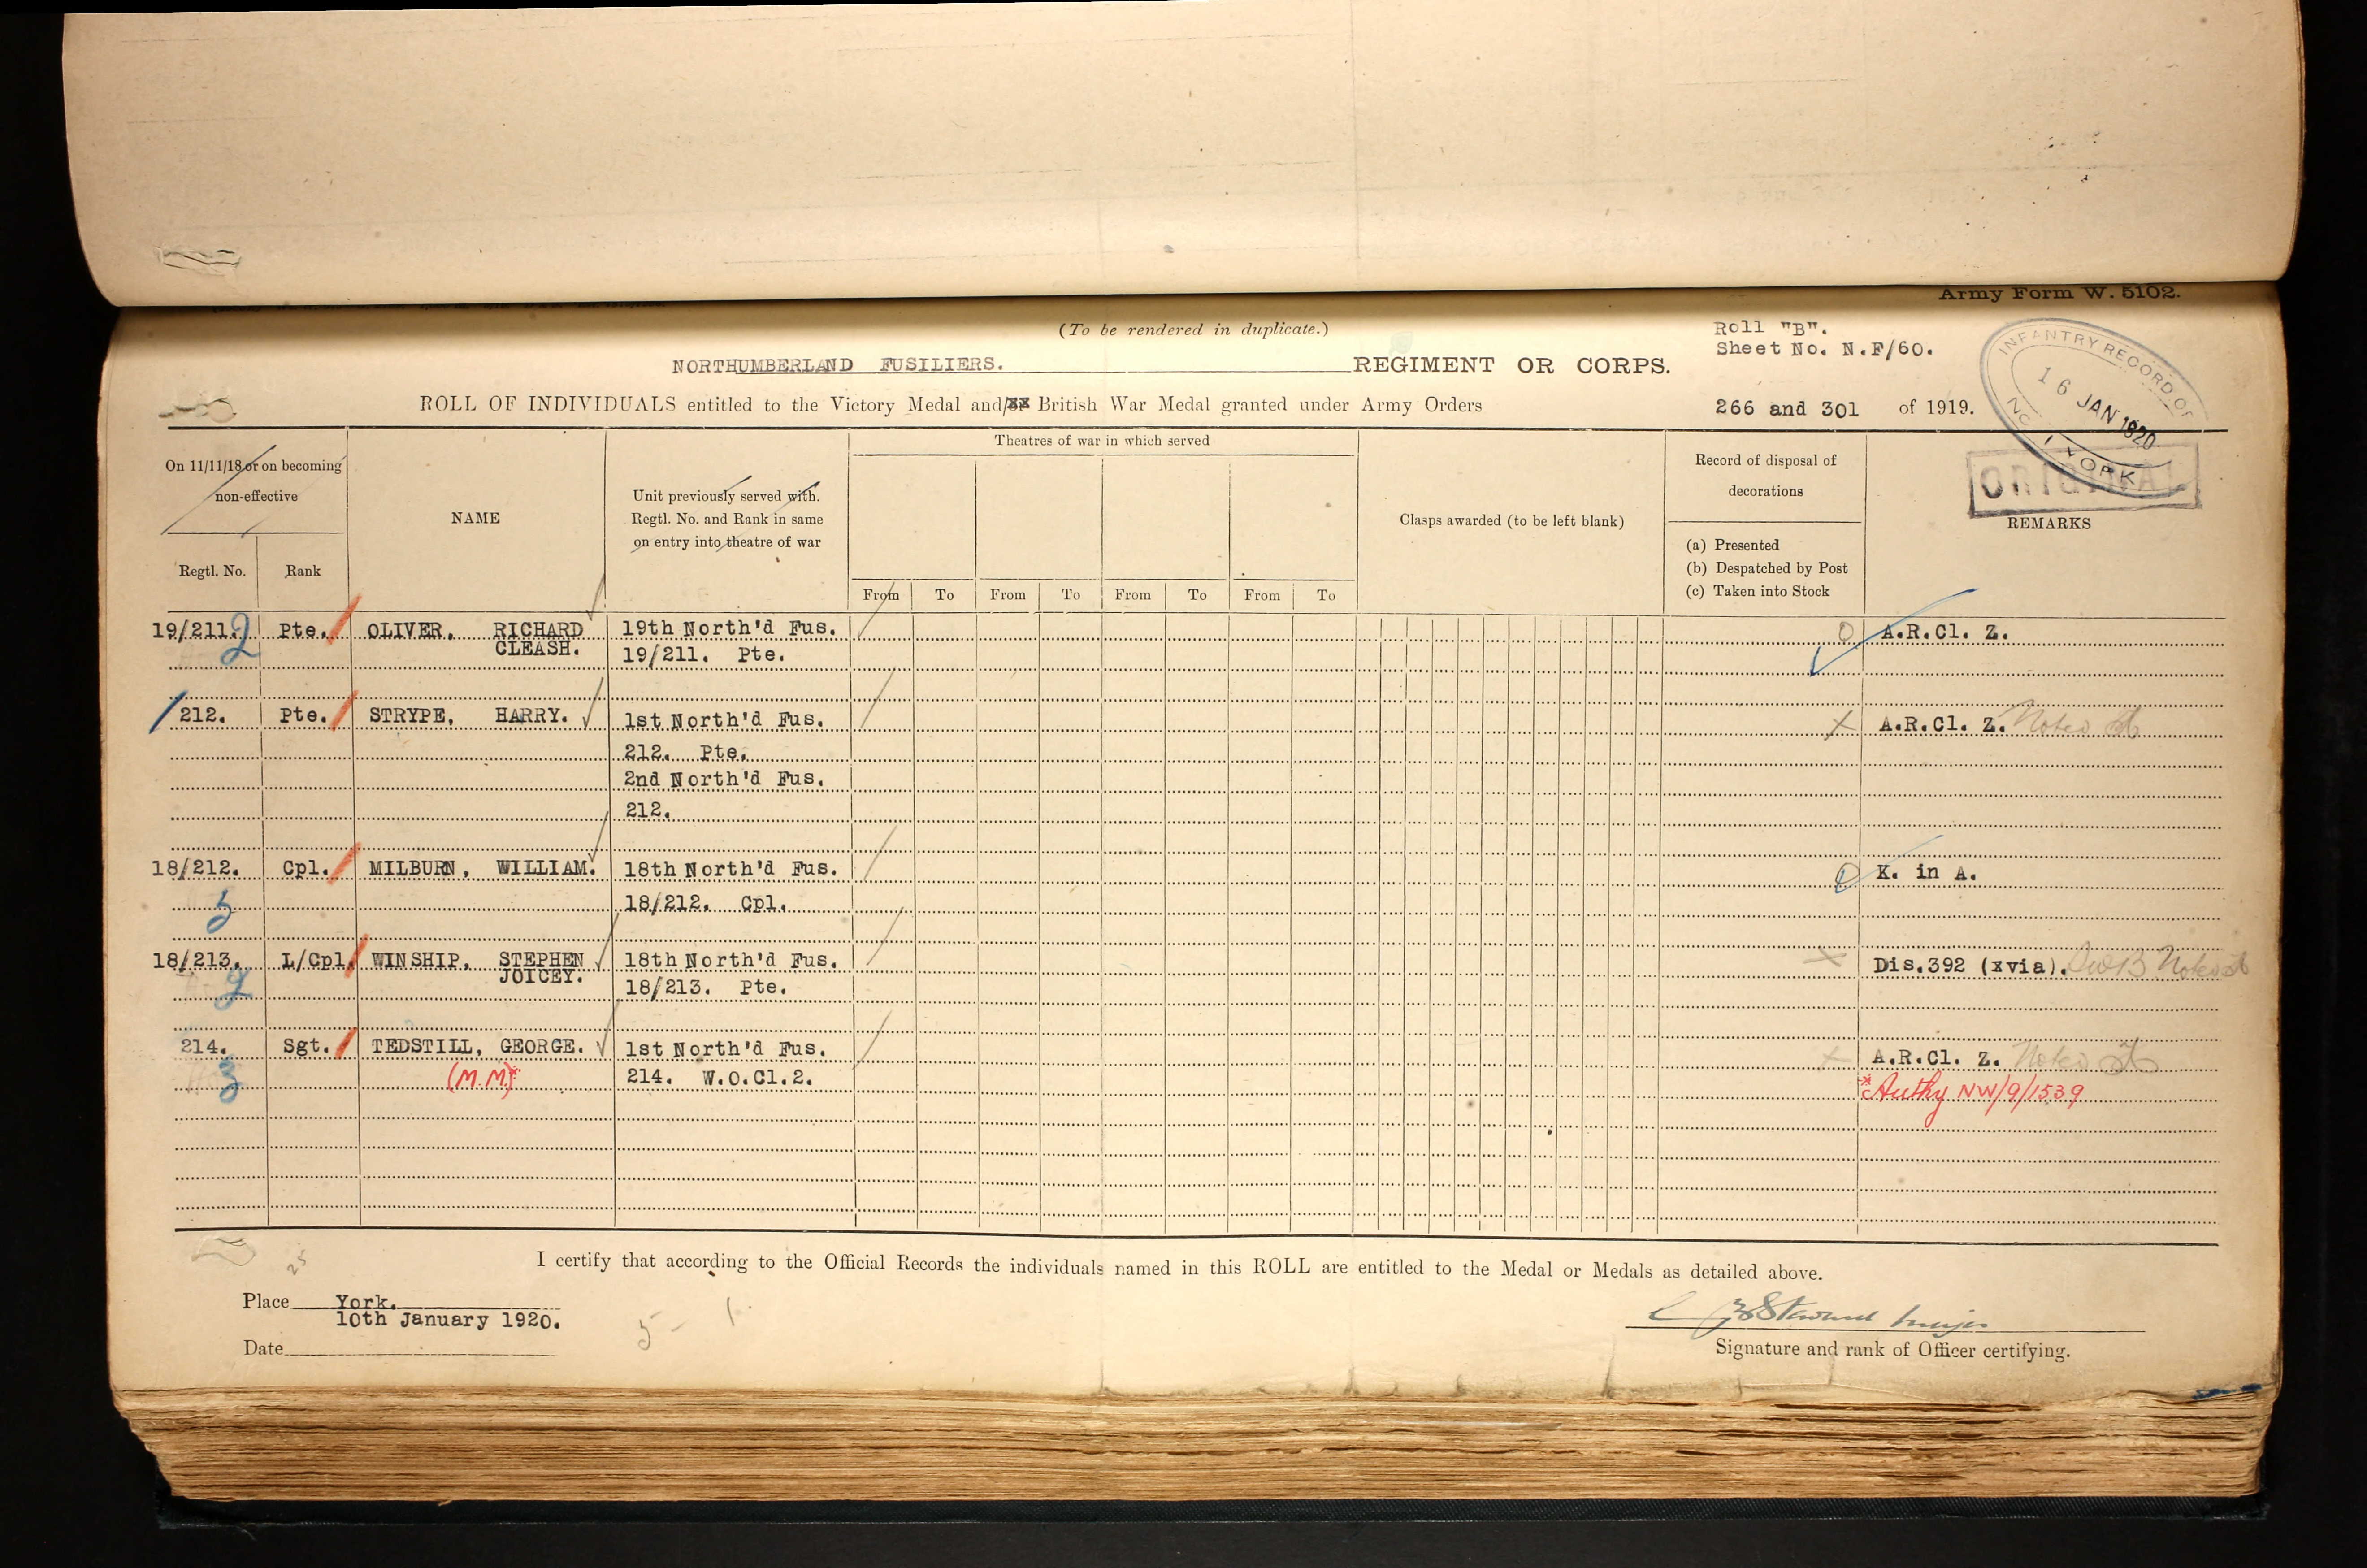 Army Form W. 5102.
(To be rendered in duplicate.)
Roll "B".
Sheet No. N.F/60.
NORTHUMBERLAND FUSILIERS. REGIMENT OR CORPS.
ROLL OF INDIVIDUALS entitled to the Victory Medal and/ British War Medal granted under Army Orders 266 and 301 of 1919.
INFANTRY RECORD OF
NO. 1 YORK
16 JAN 1920
ORIGINAL
On 11/11/18 or on becoming
non-effective
Regtl. No.
Rank
NAME
Unit previously served with.
Regtl. No. and Rank in same
on entry into theatre of war
Theatres of war in which served
From To From To From To From To
Clasps awarded (to be left blank)
Record of disposal of
decorations
(a) Presented
(b) Despatched by Post
(c) Taken into Stock
REMARKS
19/211. Pte. OLIVER. RICHARD 19th North'd Fus. A.R.Cl. Z.
2 CLEASH. 19/211. Pte.
212. Pte. STRYPE, HARRY. 1st North'd Fus. X A.R.Cl. Z. Noted
212. Pte.
2nd North'd Fus.
212.
18/212. Cpl. MILBURN, WILLIAM. 18th North'd Fus. K. in A.
18/212. Cpl.
18/213. L/Cpl WINSHIP. STEPHEN 18th North'd Fus. X Dis.392 (xvia). Noted
JOICEY. 18/213. Pte.
214. Sgt. TEDSTILL, GEORGE. 1st North'd Fus. X A.R.Cl. Z. Noted
3 (M.M)* 214. W.O.Cl.2.
*Authy NW/9/1539
I certify that according to the Official Records the individuals named in this ROLL are entitled to the Medal or Medals as detailed above.
25
Place York.
10th January 1920.
5 - 1.
Date
Major
Signature and rank of Officer certifying.